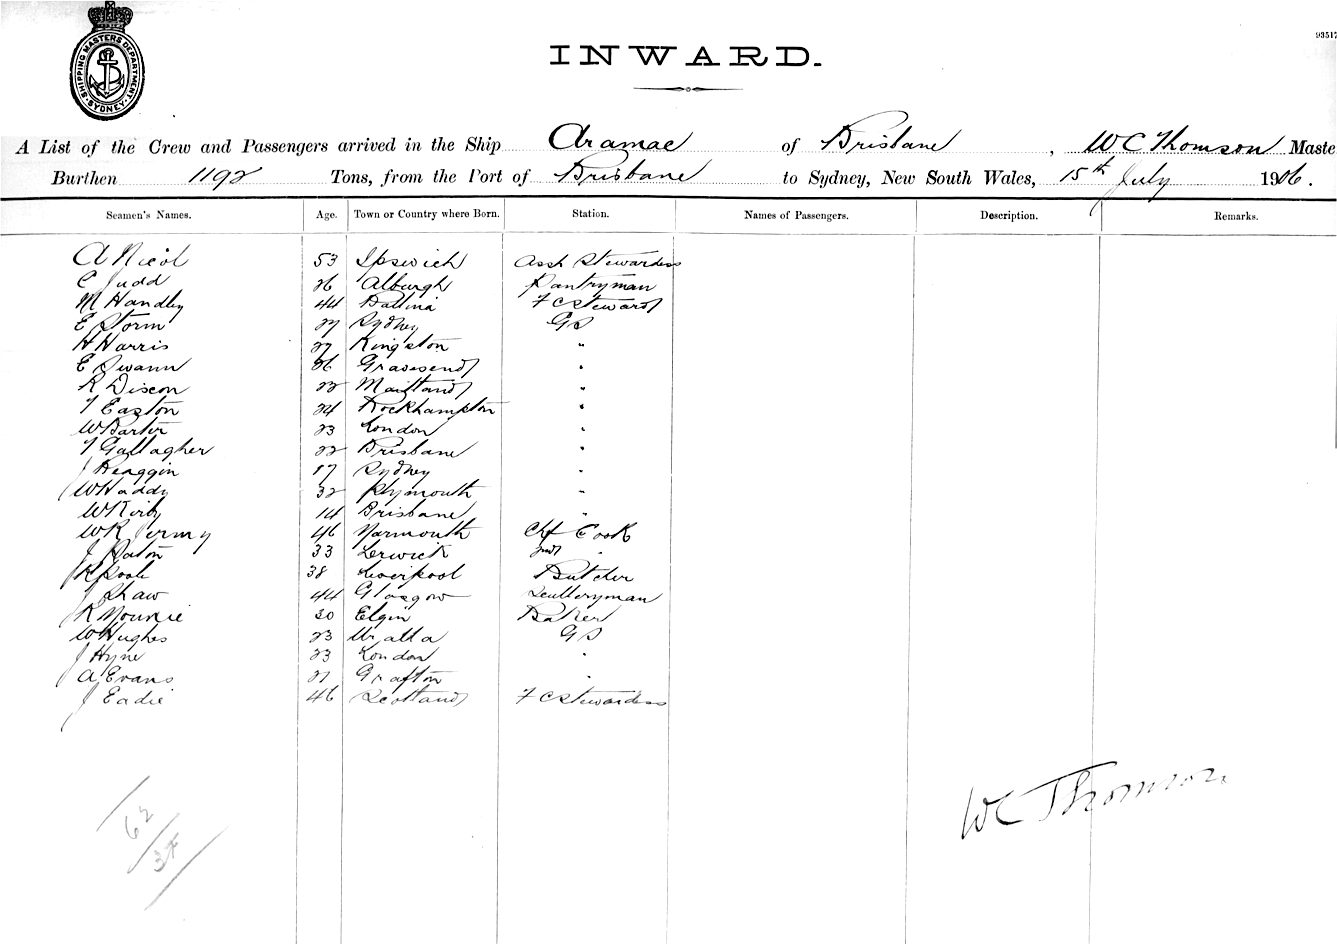 SHIPPING MASTERS DEPARTMENT. SYDNEY
93517
INWARD.
A List of the Crew and Passengers arrived in the Ship Aramac of Brisbane, W C Thomson Maste
Burthen 1192 Tons, from the Port of Brisbane to Sydney, New South Wales, 15th July 1906.
Seamen's Names. Age. Town or Country where Born. Station. Names of Passengers. Description. Remarks.
A Nicol 53 Ipswich Asst Stewardess
C Judd 26 Alburgh Pantryman
M Handley 44 Ballina F C Steward
E Storm 27 Sydney GS
H Harris 27 Kingston "
E Swann 26 Gravesend "
R Dixon 22 Maitland "
T Easton 24 Rockhampton "
W Barter 23 London "
T Gallagher 22 Brisbane "
J Heaggin 17 Sydney "
W Haddy 32 Plymouth "
W Kirby 14 Brisbane "
W R Jermy 46 Yarmouth Chf Cook
J Paton 33 Lerwick 2nd "
R Poole 38 Liverpool Butcher
J Shaw 44 Glasgow Sculleryman
R 30 Elgin Baker
W Hughes 23 Uralla GS
J Hyne 23 London "
A Evans 21 Grafton "
J Eadie 46 Scotland F C Stewardess
W C Thomson
62
37